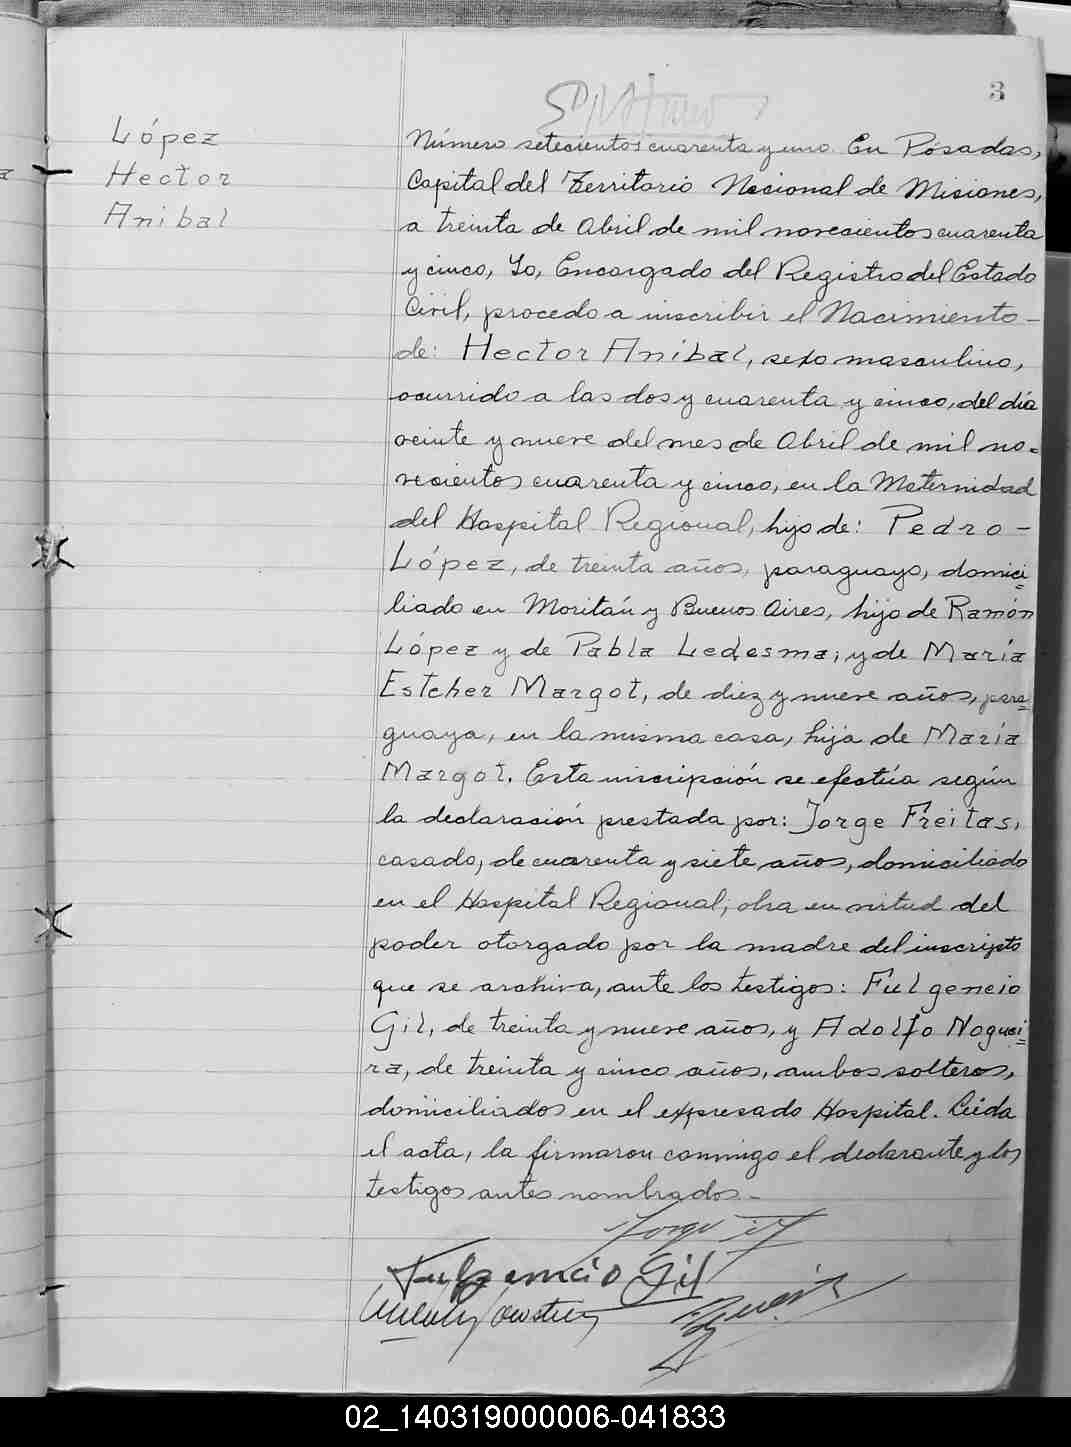 3
López
Hector
Anibal
Número setecientos cuarenta y uno. En Posadas,
Capital del Territorio Nacional de Misiones,
a treinta de Abril de mil novecientos cuarenta
y cinco, Yo, Encargado del Registro del Estado
Civil, procedo a inscribir el Nacimiento-
de: Hector Anibal, sexo masculino,
ocurrido a las dos y cuarenta y cinco, del día
veinte y nueve del mes de Abril de mil no=
vecientos cuarenta y cinco, en la Maternidad
del Hospital Regional, hijo de: Pedro-
López, de treinta años, paraguayo, domici=
liado en Moritán y Buenos Aires, hijo de Ramón
López y de Pabla Ledesma; y de María
Estcher Margot, de diez y nueve años, para=
guaya, en la misma casa, hija de María
Margot. Esta inscripción se efectúa según
la declaración prestada por: Jorge Freitas,
casado, de cuarenta y siete años, domiciliado
en el Hospital Regional; obra en virtud del
poder otorgado por la madre del inscripto
que se archiva, ante los testigos: Fulgencio
Gil, de treinta y nueve años, y Adolfo Noguei=
ra, de treinta y cinco años, ambos solteros,
domiciliados en el expresado Hospital. Leída
el acta, la firmaron conmigo el declarante y los
testigos antes nombrados.-
Jorge
Fulgencio Gil
02_140319000006-041833